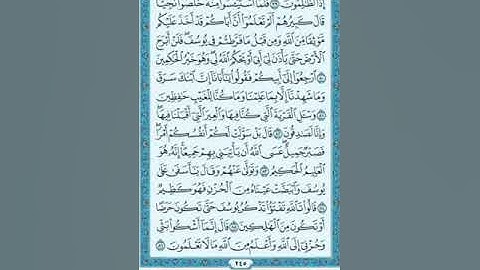 إِذًا لَّظَٰلِمُونَ ٧٩ فَلَمَّا ٱسْتَيْـَٔسُوا۟ مِنْهُ خَلَصُوا۟ نَجِيًّا
قَالَ كَبِيرُهُمْ أَلَمْ تَعْلَمُوٓا۟ أَنَّ أَبَاكُمْ قَدْ أَخَذَ عَلَيْكُم
مَّوْثِقًا مِّنَ ٱللَّهِ وَمِن قَبْلُ مَا فَرَّطتُمْ فِى يُوسُفَ فَلَنْ أَبْرَحَ
ٱلْأَرْضَ حَتَّىٰ يَأْذَنَ لِىٓ أَبِىٓ أَوْ يَحْكُمَ ٱللَّهُ لِى وَهُوَ خَيْرُ ٱلْحَٰكِمِينَ
٨٠ ٱرْجِعُوٓا۟ إِلَىٰٓ أَبِيكُمْ فَقُولُوا۟ يَٰٓأَبَانَآ إِنَّ ٱبْنَكَ سَرَقَ
وَمَا شَهِدْنَآ إِلَّا بِمَا عَلِمْنَا وَمَا كُنَّا لِلْغَيْبِ حَٰفِظِينَ
٨١ وَسْـَٔلِ ٱلْقَرْيَةَ ٱلَّتِى كُنَّا فِيهَا وَٱلْعِيرَ ٱلَّتِىٓ أَقْبَلْنَا فِيهَا
وَإِنَّا لَصَٰدِقُونَ ٨٢ قَالَ بَلْ سَوَّلَتْ لَكُمْ أَنفُسُكُمْ أَمْرًا
فَصَبْرٌ جَمِيلٌ عَسَى ٱللَّهُ أَن يَأْتِيَنِى بِهِمْ جَمِيعًا إِنَّهُۥ هُوَ
ٱلْعَلِيمُ ٱلْحَكِيمُ ٨٣ وَتَوَلَّىٰ عَنْهُمْ وَقَالَ يَٰٓأَسَفَىٰ عَلَىٰ
يُوسُفَ وَٱبْيَضَّتْ عَيْنَاهُ مِنَ ٱلْحُزْنِ فَهُوَ كَظِيمٌ
٨٤ قَالُوا۟ تَٱللَّهِ تَفْتَؤُا۟ تَذْكُرُ يُوسُفَ حَتَّىٰ تَكُونَ حَرَضًا
أَوْ تَكُونَ مِنَ ٱلْهَٰلِكِينَ ٨٥ قَالَ إِنَّمَآ أَشْكُوا۟ بَثِّى
وَحُزْنِىٓ إِلَى ٱللَّهِ وَأَعْلَمُ مِنَ ٱللَّهِ مَا لَا تَعْلَمُونَ ٨٦
٢٤٥